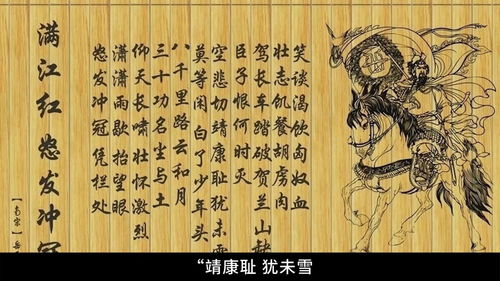 满江红 怒发冲冠
【南宋】岳
怒发冲冠凭栏处
潇潇雨歇抬望眼
仰天长啸壮怀激烈
三十功名尘与土
八千里路云和月
莫等闲白了少年头
空悲切靖康耻犹未雪
臣子恨何时灭
驾长车踏破贺兰山缺
壮志饥餐胡虏肉
笑谈渴饮匈奴血
“靖康耻 犹未雪